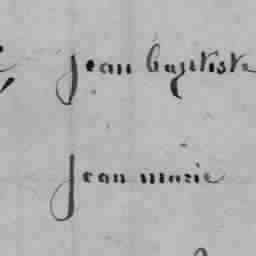 jean baptiste
jean marie